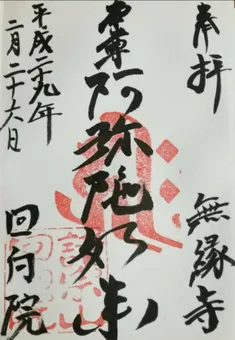 奉拝
無縁寺
本尊阿弥陀如来
平成二九年
二月二十六日
回向院